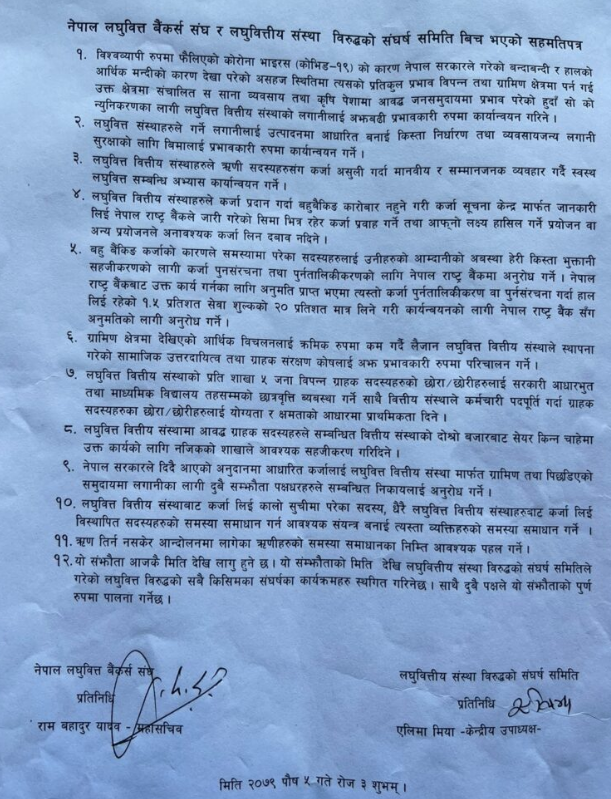 नेपाल लघुवित्त बैंकर्स संघ र लघुवित्तीय संस्था विरुद्धको संघर्ष समिति बिच भएको सहमतिपत्र
१. विश्वव्यापी रुपमा फैलिएको कोरोना भाइरस (कोभिड-१९) को कारण नेपाल सरकारले गरेको बन्दाबन्दी र हालको
आर्थिक मन्दीको कारण देखा परेको असहज स्थितिमा त्यसको प्रतिकुल प्रभाव विपन्न तथा ग्रामिण क्षेत्रमा पर्न गई
उक्त क्षेत्रमा संचालित स साना व्यवसाय तथा कृषि पेशामा आवद्ध जनसमुदायमा प्रभाव परेको हुदाँ सो को
न्युनिकरणका लागी लघुवित्त वित्तीय संस्थाको लगानीलाई अझबढी प्रभावकारी रुपमा कार्यान्वयन गरिने ।
२. लघुवित्त संस्थाहरुले गर्ने लगानीलाई उत्पादनमा आधारित बनाई किस्ता निर्धारण तथा व्यवसायजन्य लगानी
सुरक्षाको लागि विमालाई प्रभावकारी रुपमा कार्यान्वयन गर्ने ।
३. लघुवित्त वित्तीय संस्थाहरुले ऋणी सदस्यहरुसंग कर्जा असुली गर्दा मानवीय र सम्मानजनक व्यवहार गर्दै स्वस्थ
लघुवित्त सम्बन्धि अभ्यास कार्यान्वयन गर्ने ।
४. लघुवित्त वित्तीय संस्थाहरुले कर्जा प्रदान गर्दा बहुबैकिङ कारोबार नहुने गरी कर्जा सूचना केन्द्र मार्फत जानकारी
लिई नेपाल राष्ट्र बैंकले जारी गरेको सिमा भित्र रहेर कर्जा प्रवाह गर्ने तथा आफ्नो लक्ष्य हासिल गर्ने प्रयोजन वा
अन्य प्रयोजनले अनावश्यक कर्जा लिन दबाव नदिने ।
५. बहु बैंकिङ कर्जाको कारणले समस्यामा परेका सदस्यहरुलाई उनीहरुको आम्दानीको अवस्था हेरी किस्ता भुक्तानी
सहजीकरणको लागी कर्जा पुनसंरचना तथा पुर्नतालिकीकरणको लागि नेपाल राष्ट्र बैंकमा अनुरोध गर्ने । नेपाल
राष्ट्र बैंकबाट उक्त कार्य गर्नका लागि अनुमति प्राप्त भएमा त्यस्तो कर्जा पुर्नतालिकीकरण वा पुर्नसंरचना गर्दा हाल
लिई रहेको १.५ प्रतिशत सेवा शुल्कको २० प्रतिशत मात्र लिने गरी कार्यन्वयनको लागी नेपाल राष्ट्र बैंक सँग
अनुमतिको लागी अनुरोध गर्ने ।
६. ग्रामिण क्षेत्रमा देखिएको आर्थिक विचलनलाई क्रमिक रुपमा कम गर्दै लैजान लघुवित्त वित्तीय संस्थाले स्थापना
गरेको सामाजिक उत्तरदायित्व तथा ग्राहक संरक्षण कोषलाई अझ प्रभावकारी रुपमा परिचालन गर्ने ।
७. लघुवित्त वित्तीय संस्थाको प्रति शाखा ५ जना विपन्न ग्राहक सदस्यहरुको छोरा/छोरीहरुलाई सरकारी आधारभुत
तथा माध्यमिक विद्यालय तहसम्मको छात्रवृत्ति ब्यवस्था गर्ने साथै वित्तीय संस्थाले कर्मचारी पदपूर्ति गर्दा ग्राहक
सदस्यहरुका छोरा/छोरीहरुलाई योग्यता र क्षमताको आधारमा प्राथमिकता दिने ।
८. लघुवित्त वित्तीय संस्थामा आवद्ध ग्राहक सदस्यहरुले सम्बन्धित वित्तीय संस्थाको दोश्रो बजारबाट सेयर किन्न चाहेमा
उक्त कार्यको लागि नजिकको शाखाले आवश्यक सहजीकरण गरिदिने ।
९. नेपाल सरकारले दिदै आएको अनुदानमा आधारित कर्जालाई लघुवित्त वित्तीय संस्था मार्फत ग्रामिण तथा पिछडिएको
समुदायमा लगानीका लागी दुबै सम्झौता पक्षधरहरुले सम्बन्धित निकायलाई अनुरोध गर्ने ।
१०. लघुवित्त वित्तीय संस्थाबाट कर्जा लिई कालो सुचीमा परेका सदस्य, धैरै लघुवित्त वित्तीय संस्थाहरुदाट कर्जा लिई
विस्थापित सदस्यहरुको समस्या समाधान गर्न आवश्यक संयन्त्र बनाई त्यस्ता व्यक्तिहरुको समस्या समाधान गर्ने ।
११. ऋण तिर्न नसकेर आन्दोलनमा लागेका ऋणीहरुको समस्या समाधानका निम्ति आवश्यक पहल गर्ने ।
१२. यो संझौता आजकै मिति देखि लागु हुने छ । यो सम्झौताको मिति देखि लघुवित्तीय संस्था विरुद्धको संघर्ष समितिले
गरेको लघुवित्त विरुद्धको सबै किसिमका संघर्षका कार्यक्रमहरु स्थगित गरिनेछ । साथै दुबै पक्षले यो संझौताको पुर्ण
रुपमा पालना गर्नेछ ।
नेपाल लघुवित्त बैंकर्स संघ
प्रतिनिधि
राम बहादुर यादव - महासचिव
लघुवित्तीय संस्था विरुद्धको संघर्ष समिति
प्रतिनिधि
एलिमा मिया -केन्द्रीय उपाध्यक्ष-
मिति २०७९ पौष ५ गते रोज ३ शुभम् ।